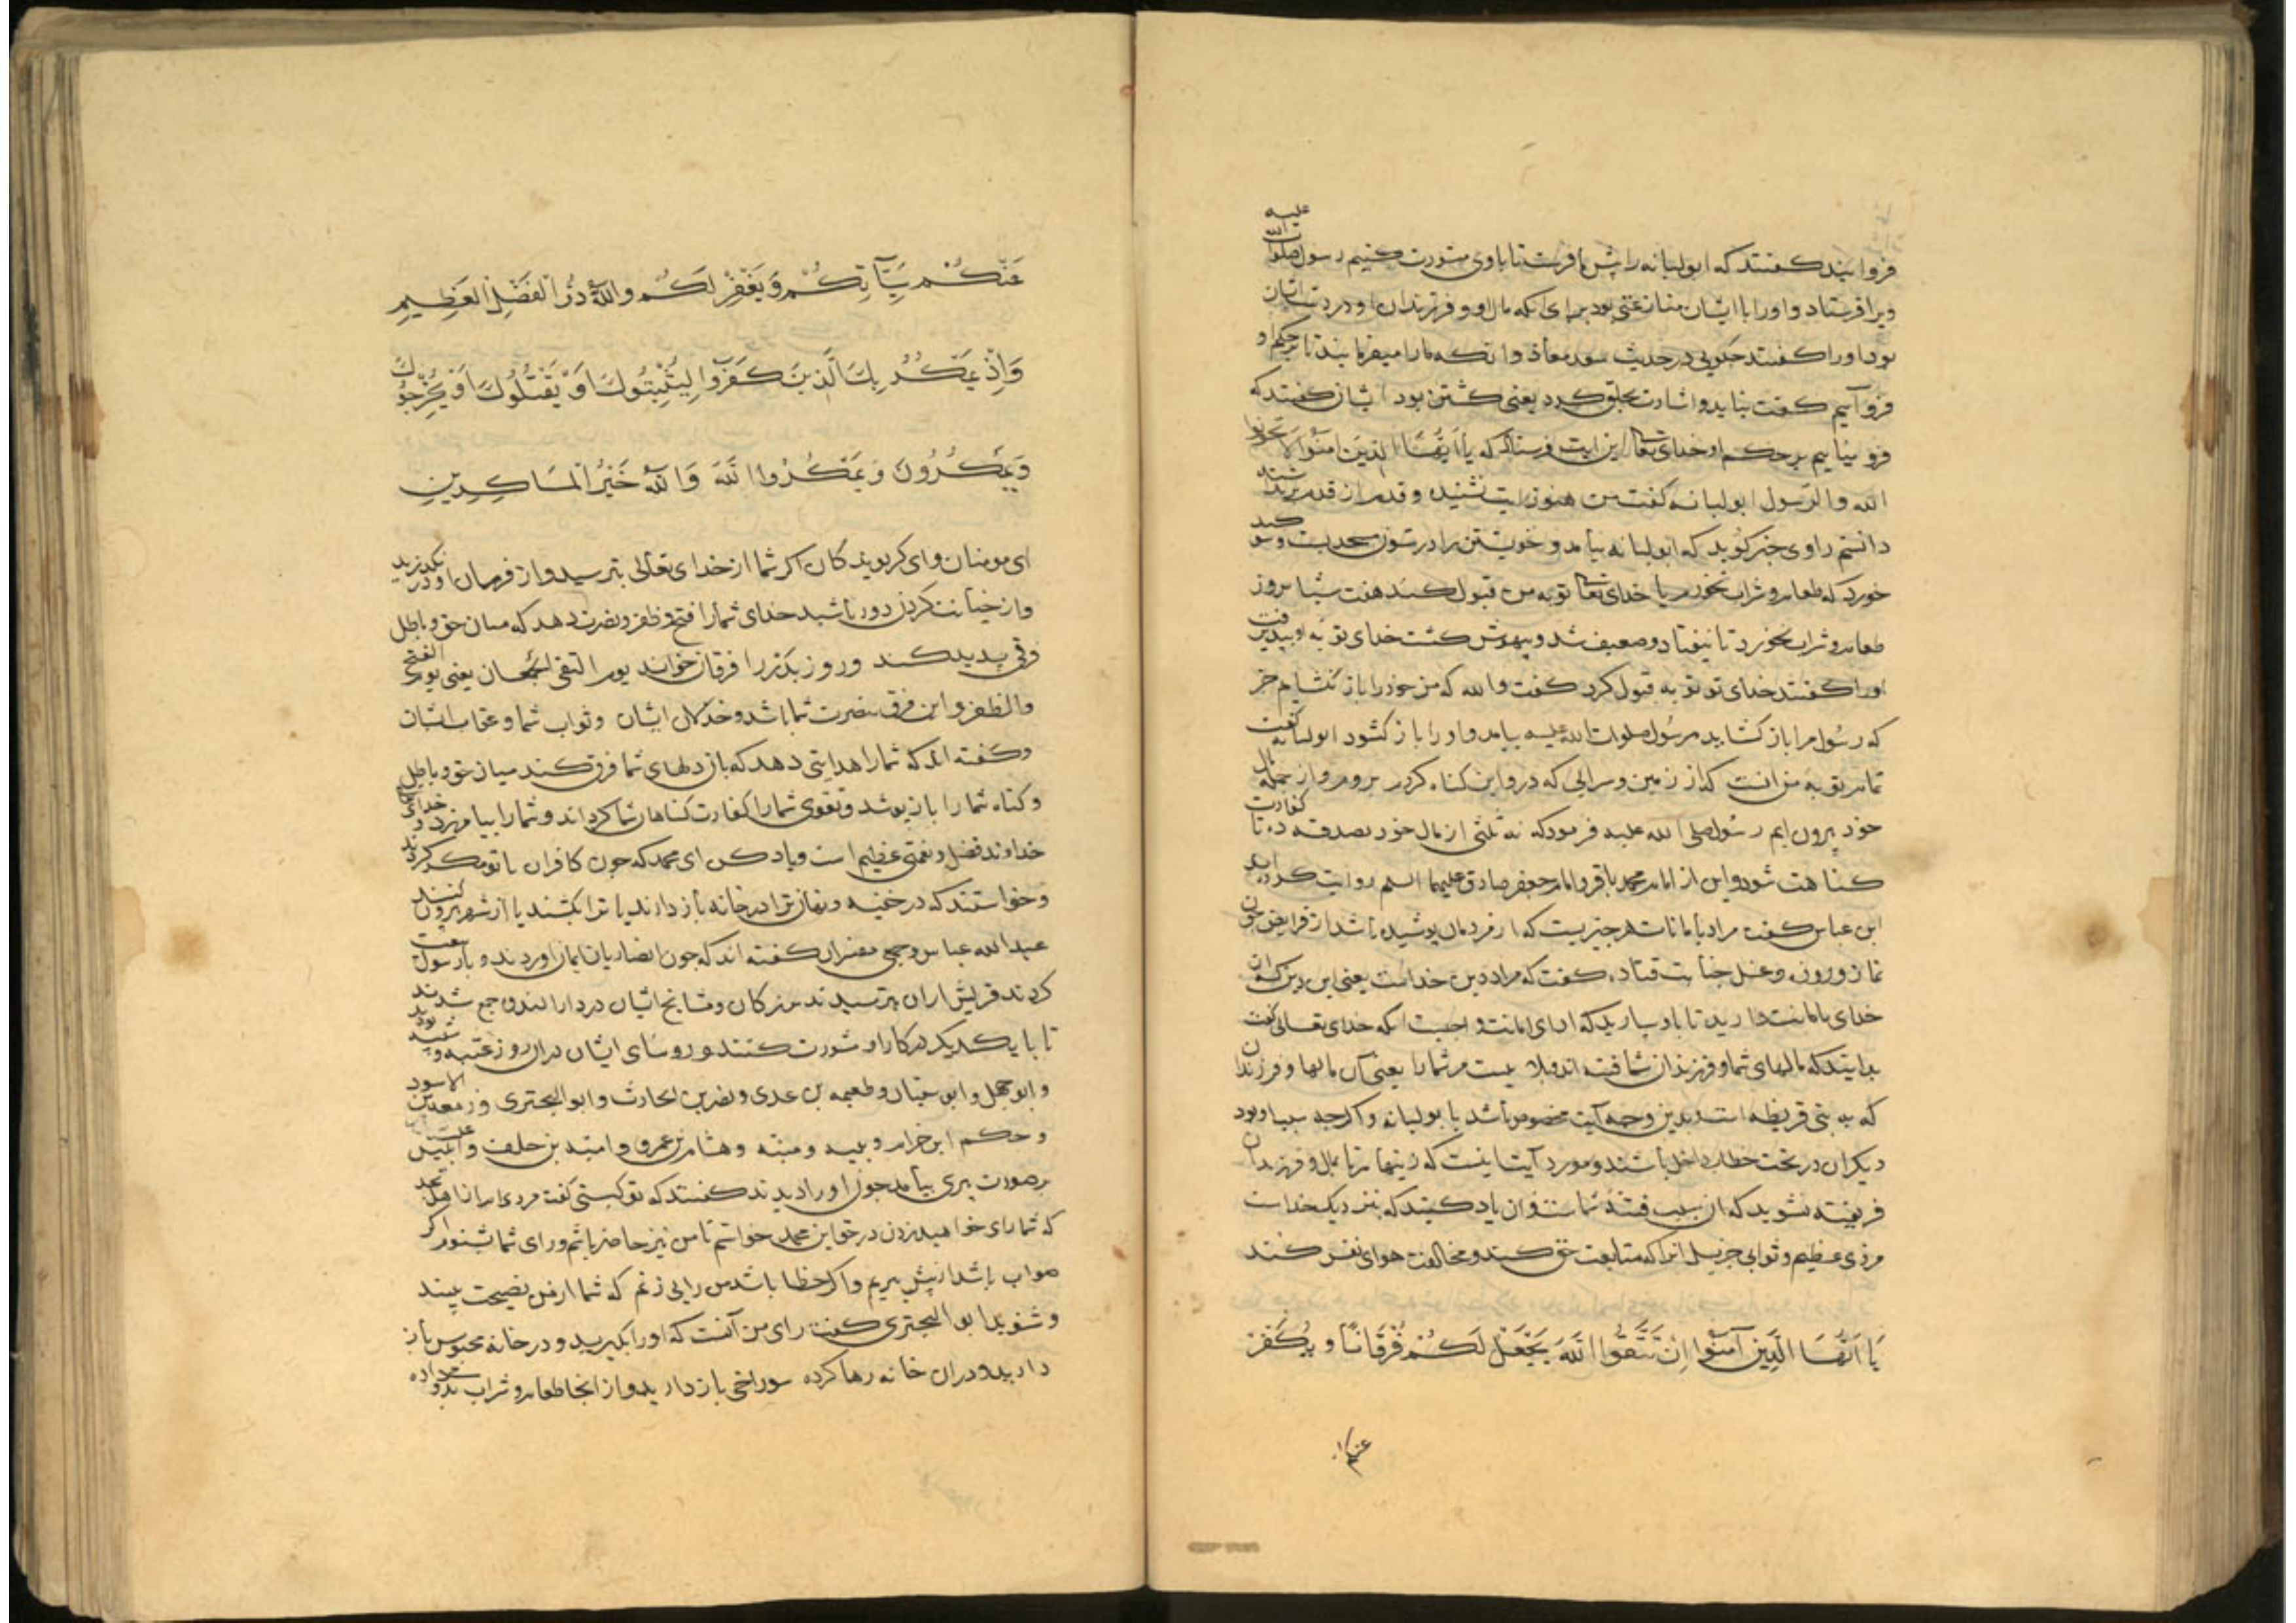 فروایند کفتند که ابولبابه را پیش ما فرست تا با وی مشورت کنیم رسول صلوات الله علیه
ویرا فرستاد و او را با ایشان مناز عتی بود برای انکه مال او و فرزندان او در دست ایشان
بود او را کفتند چکویی در حدیث سعد معاذ و انکه ما را میفرمایند تا بر حکم او
فرو آییم کفت نباید و اشارت بحلق کرد یعنی کشتن بود ایشان کفتند که
فرو نیاییم بر حکم او خدای تعا این ایت فرستاد که یا ایها الذین امنوا لا تخونوا
الله والرسول ابولبابه کفت من هنوز ایت نشنیده و قدم از قدم برنداشته
دانستم راوی خبر کوید که ابولبابه بیامد و خویشتن را در ستون مسجد بست و سوکند
خورد که طعام و شراب نخورم یا خدای تعا توبه من قبول کند هفت شبانروز
طعام و شراب نخورد تا بیفتاد و ضعیف شد و بیهوش کشت خدای توبه او بپذیرفت
او را کفتند خدای تو توبه قبول کرد کفت والله که من خود را باز نکشایم جز
که رسول مرا باز کشاید رسول صلوات الله علیه بیامد و او را باز کشود ابولبابه کفت
تمام توبه من انست که از زمین و سرایی که درو این کناه کردم بروم و از جمله مال
خود بیرون ایم رسول صلی الله علیه فرمود که نه ثلثی از مال خود بصدقه ده تا کفارت
کناهت شود و این از امام محمد باقر و امام جعفر صادق علیهما السلم روایت کرده اند
ابن عباس کفت مراد بامانات هر چیزیست که از مردمان پوشیده باشد از فرایض چون
نماز و روزه و غسل جنابت قتاده کفت که مراد دین خداست یعنی این دین که از ان
خدای بامانت دارید تا باد سپارید که ادای امانت واجبست انکه خدای تعالی کفت
بدانیتد که مالهای شما و فرزندان شما فتنه اند و بلا یست مر شما را یعنی آن مالها و فرزندان
که به بنی قریظه است و بدین وجه آیت مخصوص باشد با بولبابه و اکرچه سبب او بود
دیکران در تحت خطاب داخل باشند و مورد آیت اینست که زینهار تا بمال و فرزندان
فریفته نشوید که ان سبب فتنه شماست و ان یاد کنیتد که بنزدیک خداست
مزدی عظیم و ثوابی جزیل انرا که متابعت حق کند و مخالفت هوای نفس کنند
یَا اَیُّهَا الَّذِینَ آمَنُوا اِنْ تَتَّقُوا اللَّهَ یَجْعَلْ لَکُمْ فُرْقَانًا وَیُکَفِّرْ
عنکم
عَنْکُمْ سَیِّآتِکُمْ وَیَغْفِرْ لَکُمْ وَاللَّهُ ذُو الْفَضْلِ الْعَظِیمِ
وَاِذْ یَمْکُرُ بِکَ الَّذِینَ کَفَرُوا لِیُثْبِتُوکَ اَوْ یَقْتُلُوکَ اَوْ یُخْرِجُوکَ
وَیَمْکُرُونَ وَیَمْکُرُ اللَّهُ وَاللَّهُ خَیْرُ الْمَاکِرِینِ
ای مومنان و ای کرویدکان اکر شما از خدای تعالی بترسید و از فرمان او درنکذرید
و از خیانت کردن دور باشید خدای شما را فتح و ظفر و نصرت دهد که میان حق و باطل
فرقی پدید کند و روز بدر را فرقان خواند یوم التقی الجمعان یعنی یوم الفتح
والظفر و این فرق بنصرت شما باشد و خذلان ایشان و ثواب شما و عقاب ایشان
و کفته اند که شما را هدایتی دهد که بان دلهای شما فرق کند میان حق و باطل
و کناه شما را باز پوشد و تقوی شما را کفارت کناهان شما کرداند و شما را بیامرزد و خدای
خداوند فضل و نعمتی عظیم است و یاد کن ای محمد که چون کافران با تو مکر کردند
و خواستند که در خفیه و نهان ترا در خانه باز دارند یا ترا بکشند یا از شهر بیرون کنند
عبدالله عباس و جمعی مفسران کفته اند که چون انصاریان ایمان اوردند و با رسول بیعت
کردند قریش از ان بترسیدند بزرکان و مشایخ ایشان در دار الندوه جمع شدند
تا با یکدیکر در کار او مشورت کنند و روسای ایشان دران روز عتبه و شیبه بود
و ابو جهل و ابو سفیان و طعیمه بن عدی و نضر بن الحارث و ابو البختری و زمعه بن الاسود
و حکیم ابن حزام و نبیه و منبه و هشام بن عمرو و امیه بن خلف و ابلیس
بر صورت پیری بیامد چون او را دیدند کفتند که تو کیستی کفت مردی ام از اهل نجد
که شما رای خواهید زدن در حق این محمد خواستم تا من نیز حاضر باشم و رای شما بشنوم اکر
صواب باشد از پیش بریم و اکر خطا باشد من رایی زنم که شما از من نصیحت بینند
و شنوید ابو البختری کفت رای من آنست که او را بکیرید و در خانه محبوس باز
دارید و دران خانه رها کرده سوراخی باز دارید و از انجا طعام و شراب بدو